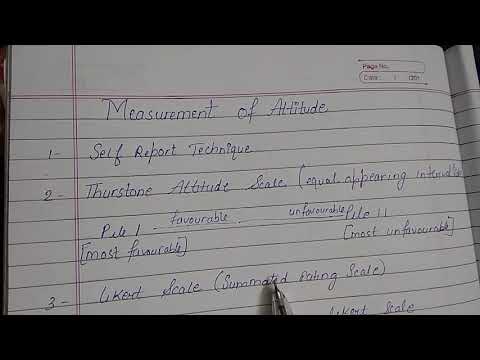 Page No.
Date / /201
Measurement of Attitude
1- Self Report Technique
2- Thurstone Attitude Scale (equal appearing interval
Pile 1 favourable unfavourable Pile 11
[most favourable] [most unfavourable]
3- Likert Scale (Summated Rating Scale)
Likert Scale